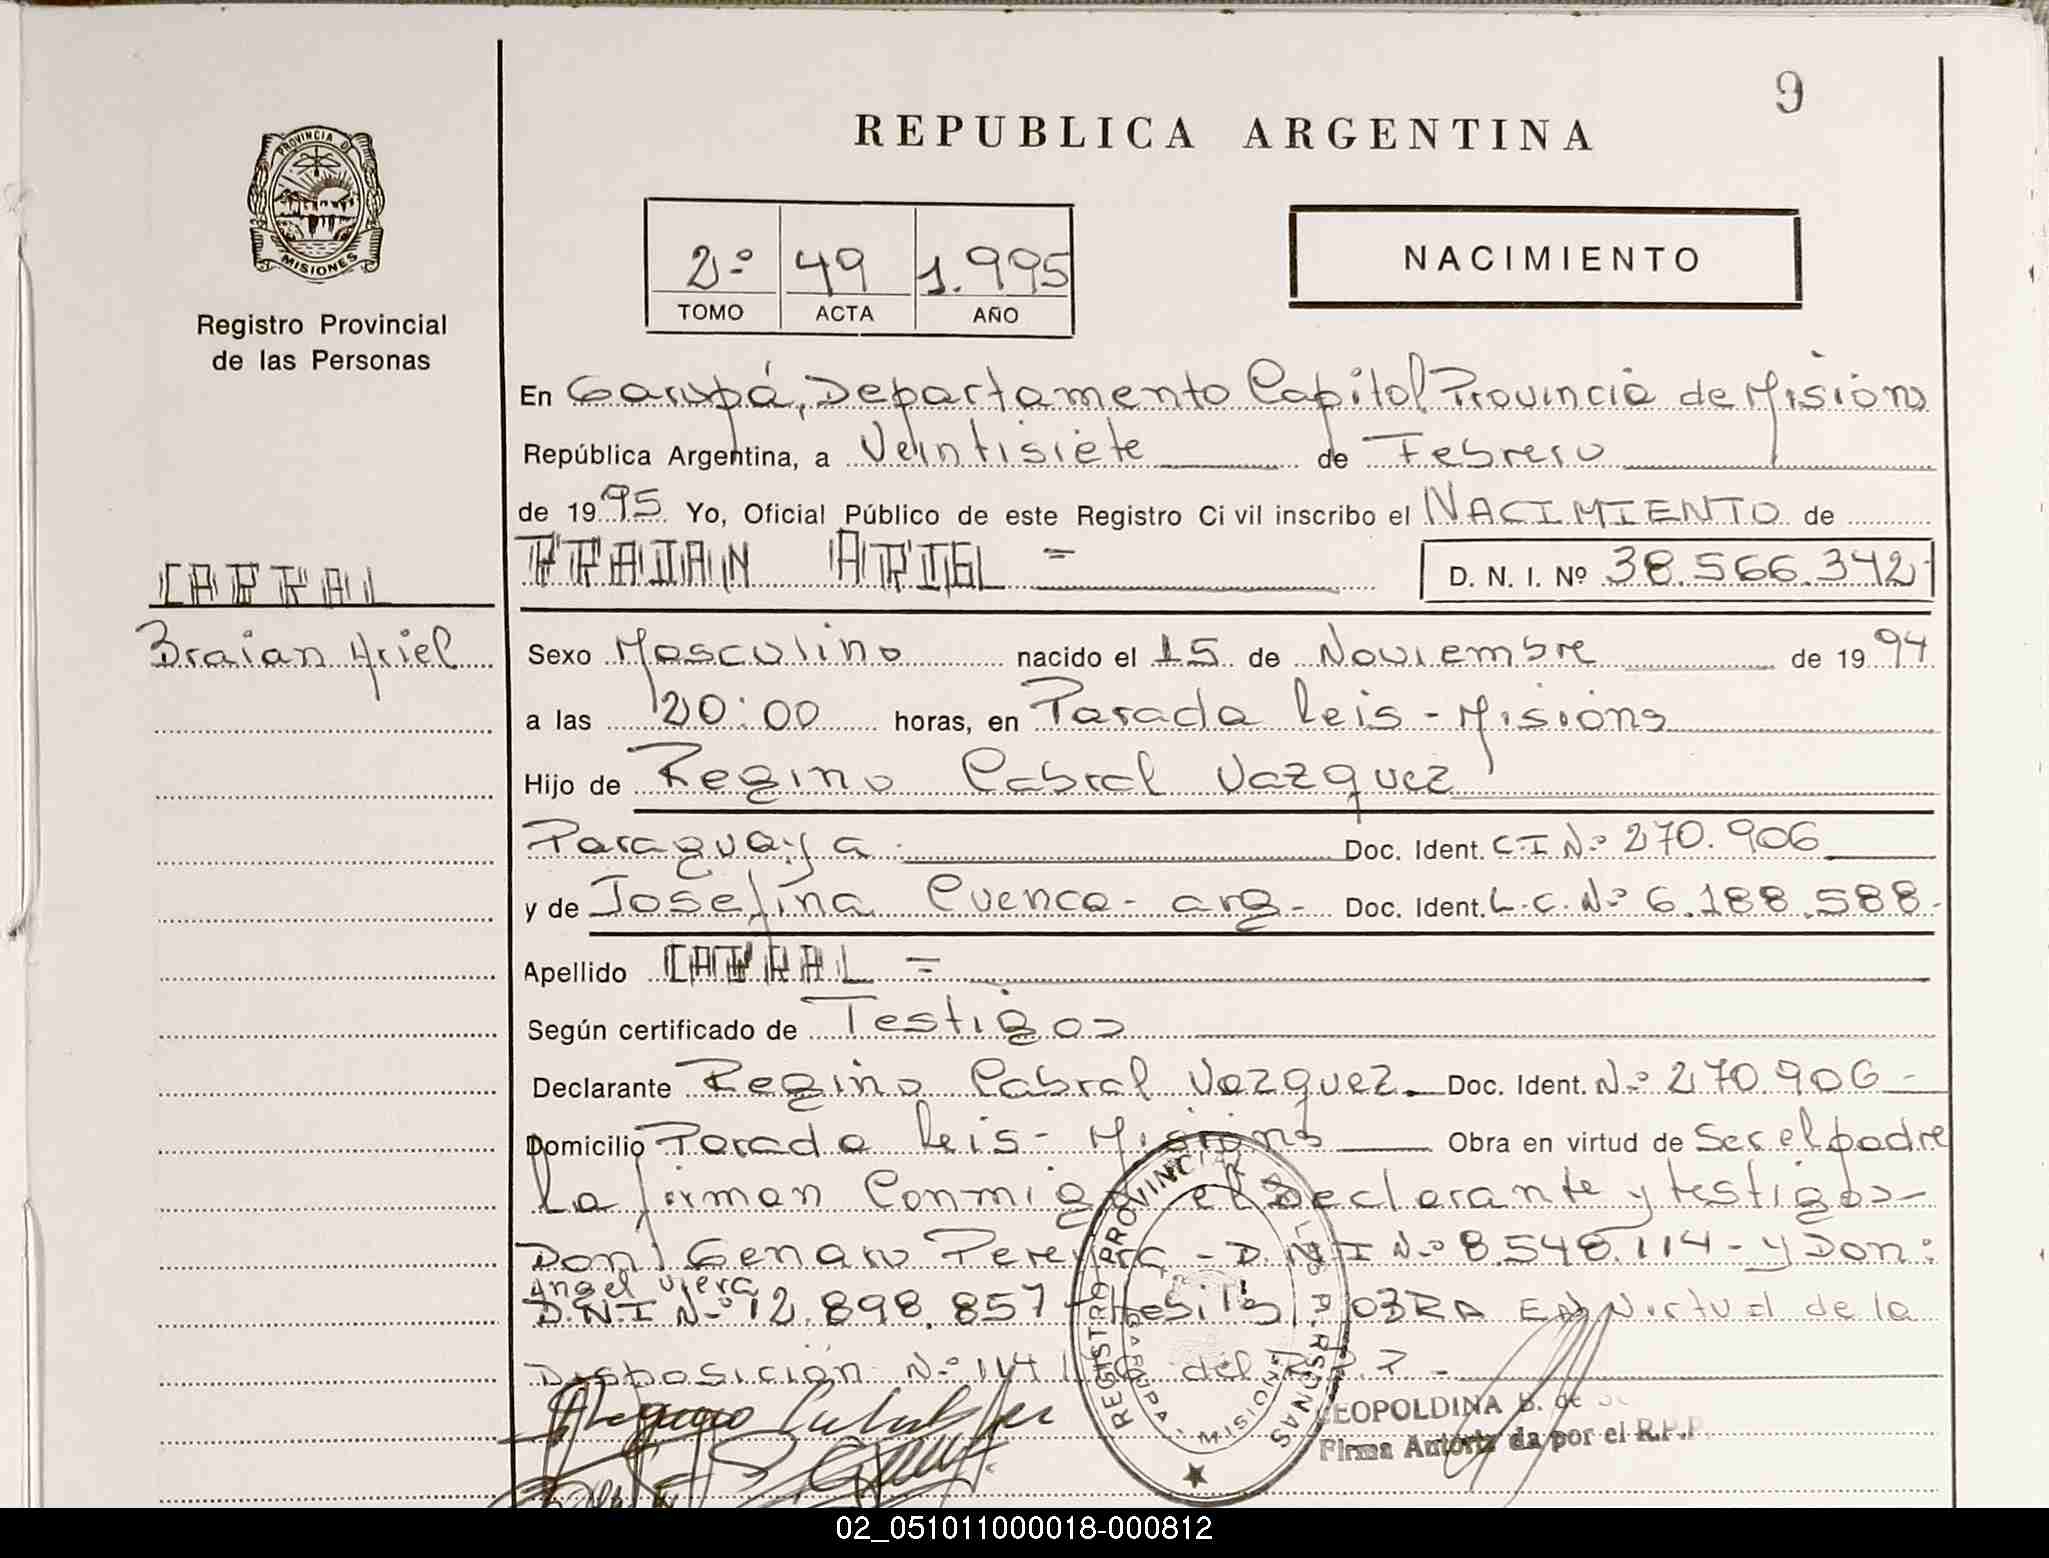 9
REPUBLICA ARGENTINA
PROVINCIA DE
MISIONES
Registro Provincial
de las Personas
2º 49 1.995
TOMO ACTA AÑO
NACIMIENTO
En Garupá, Departamento Capital Provincia de Misiones
República Argentina, a Veintisiete de Febrero
de 1995 Yo, Oficial Público de este Registro Civil inscribo el NACIMIENTO de
BRAIAN ARIEL = D. N. I. Nº 38.566.342
CABRAL
Braian Ariel
Sexo Masculino nacido el 15 de Noviembre de 1994
a las 20:00 horas, en Parada Leis - Misiones
Hijo de Regino Cabral Vazquez
Paraguaya Doc. Ident. C.I.Nº 270.906
y de Josefina Cuenca - arg - Doc. Ident. L.C. Nº 6.188.588-
Apellido CABRAL =
Según certificado de Testigos
Declarante Regino Cabral Vazquez Doc. Ident. Nº 270.906-
Domicilio Parada Leis - Misiones Obra en virtud de Ser el padre
La firman Conmigo el Declarante y testigos-
Don Genaro Pereyra - D.N.I Nº 8.548.114 - y Don:
Angel Viera
D.N.I Nº 12.898.857 OBRA EN Virtud de la
Disposición Nº 114 del R.P.P -
REGISTRO PROVINCIAL DE LAS PERSONAS
GARUPA - MISIONES
LEOPOLDINA B. de
Firma Autorizada por el R.P.P.
02_051011000018-000812